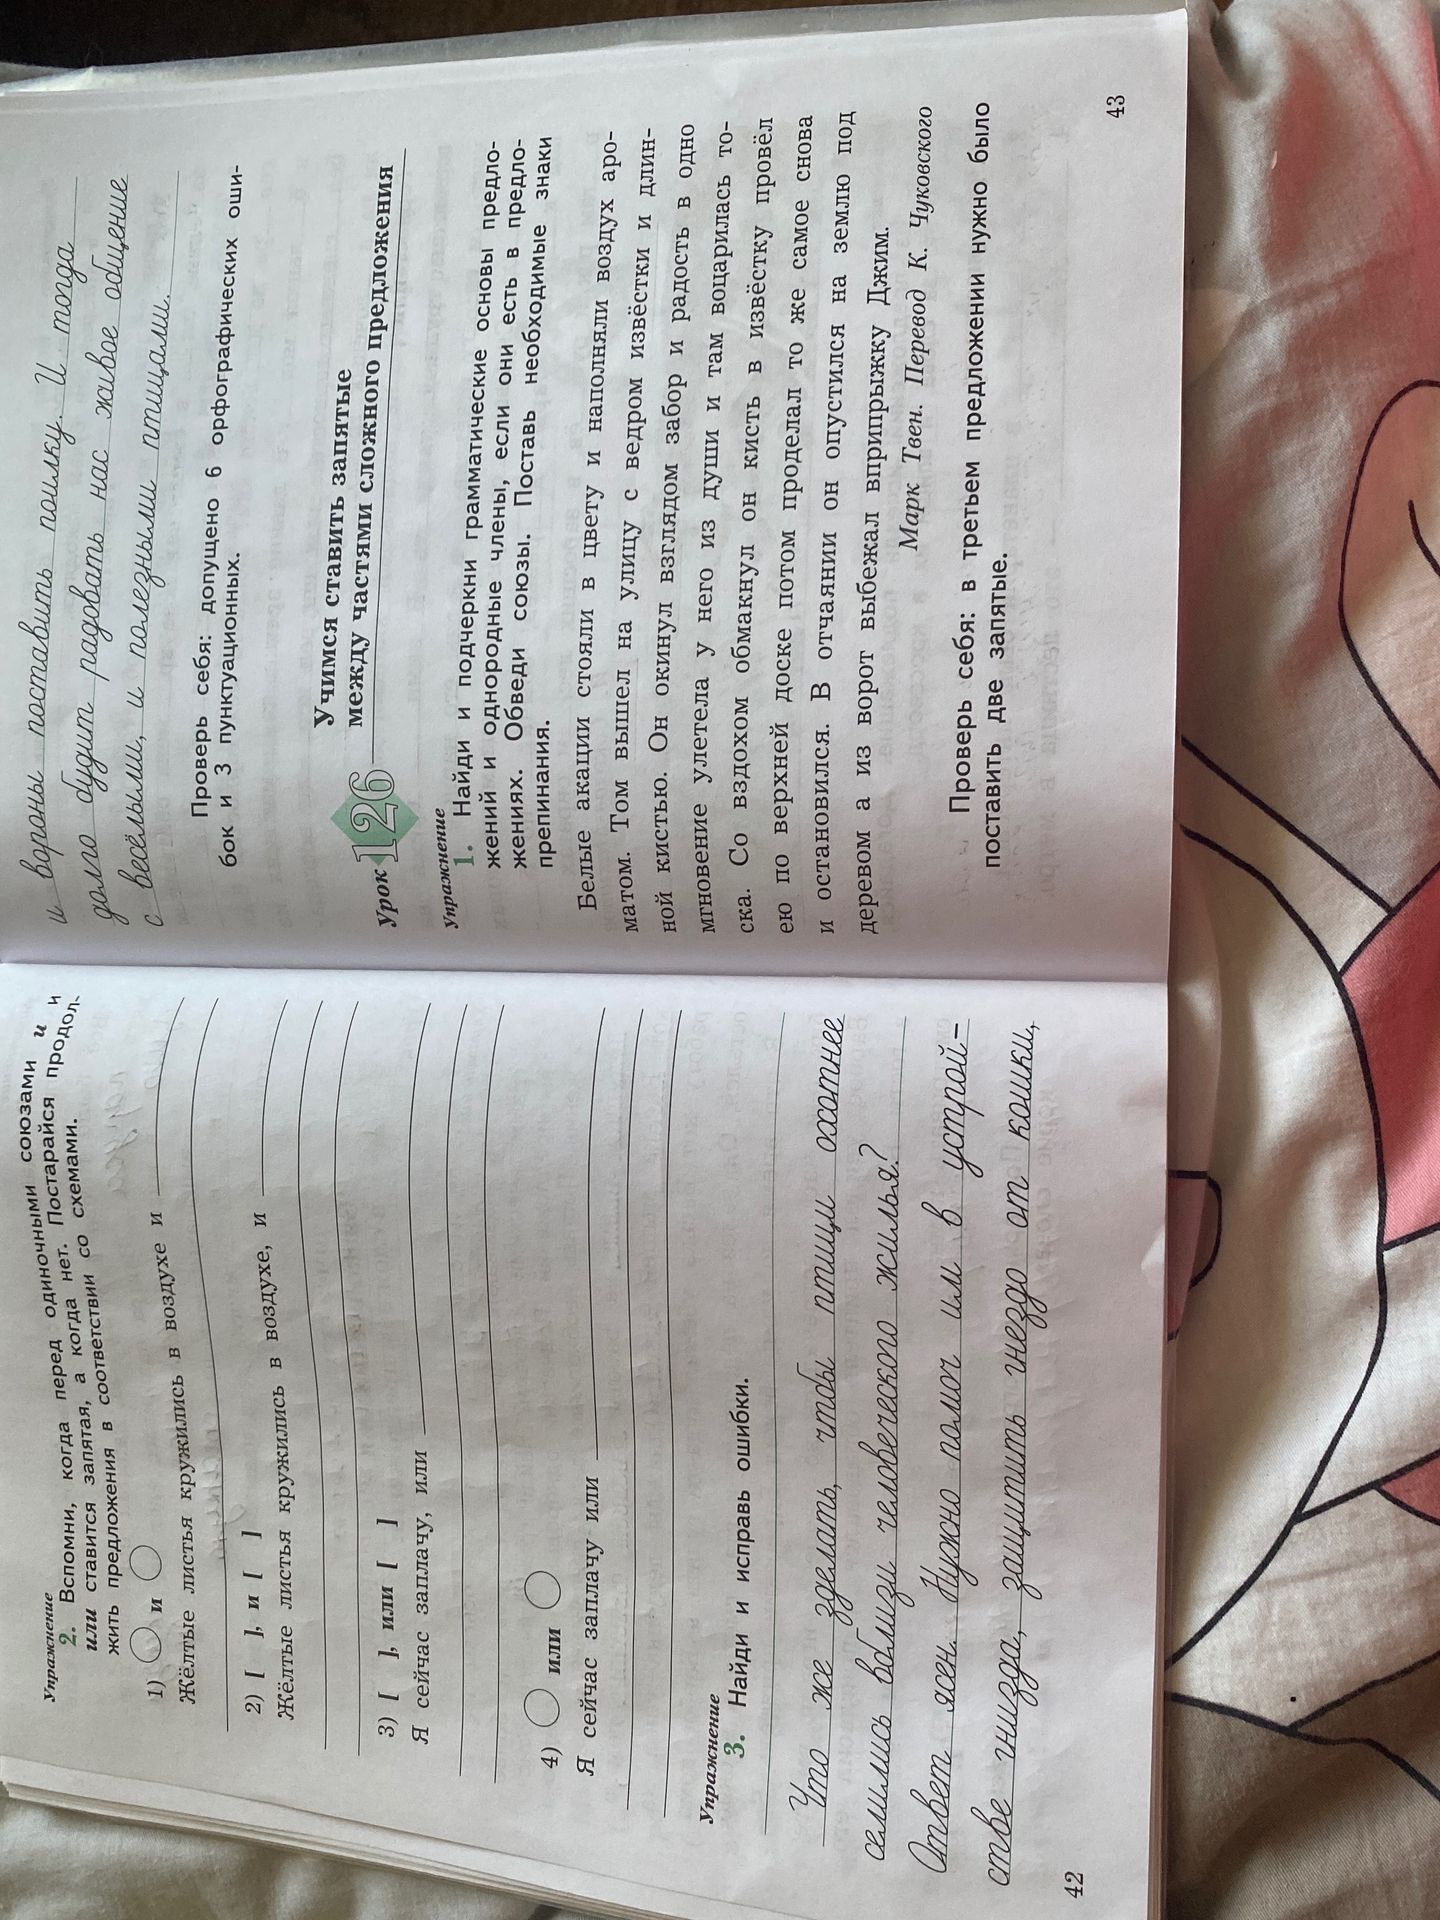 Упражнение
2. Вспомни, когда перед одиночными союзами и и
или ставится запятая, а когда нет. Постарайся продол-
жить предложения в соответствии со схемами.
1) ◯ и ◯
Жёлтые листья кружились в воздухе и
2) [ ], и [ ]
Жёлтые листья кружились в воздухе, и
3) [ ], или [ ]
Я сейчас заплачу, или
4) ◯ или ◯
Я сейчас заплачу или
Упражнение
3. Найди и исправь ошибки.
Что же зделать, чтобы птицы охотнее
селились воблизи человеческого жилья?
Ответ ясен. Нужно помоч им в устрой-
стве гнизда, защитить гнездо от кошки,
42
и вороны поставить поилку. И тогда
долго будит радовать нас живое общение
с весёлыми, и полезными птицами.
Проверь себя: допущено 6 орфографических оши-
бок и 3 пунктуационных.
Урок 126
Учимся ставить запятые
между частями сложного предложения
Упражнение
1. Найди и подчеркни грамматические основы предло-
жений и однородные члены, если они есть в предло-
жениях. Обведи союзы. Поставь необходимые знаки
препинания.
Белые акации стояли в цвету и наполняли воздух аро-
матом. Том вышел на улицу с ведром извёстки и длин-
ной кистью. Он окинул взглядом забор и радость в одно
мгновение улетела у него из души и там воцарилась то-
ска. Со вздохом обмакнул он кисть в извёстку провёл
ею по верхней доске потом проделал то же самое снова
и остановился. В отчаянии он опустился на землю под
деревом а из ворот выбежал вприпрыжку Джим.
Марк Твен. Перевод К. Чуковского
Проверь себя: в третьем предложении нужно было
поставить две запятые.
43